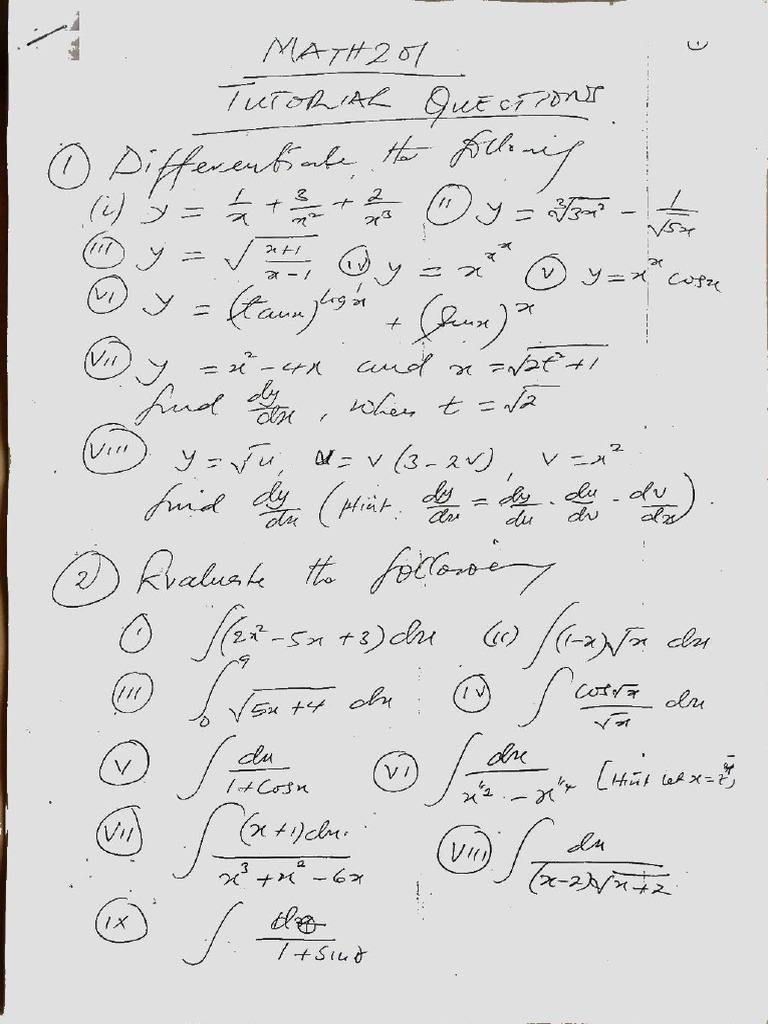 MATH 201
TUTORIAL QUESTIONS
① Differentiate the following
(i) y = 1/x + 3/x² + 2/x³ (ii) y = ∛3x² - 1/√5x
(iii) y = √(x+1)/(x-1) (iv) y = x^x^x (v) y = x^x cosx
(vi) y = (tanx)^logx + (sinx)^x
(vii) y = x² - 4x and x = √2t²+1
find dy/dx, when t = √2
(viii) y = √u, u = v(3-2v), v = x²
find dy/dx (Hint: dy/dx = dy/du · du/dv · dv/dx).
② Evaluate the following
(i) ∫(2x² - 5x + 3)dx (ii) ∫(1-x)√x dx
(iii) ∫₀⁹ √5x+4 dx (iv) ∫ cos√x/√x dx
(v) ∫ dx/1+cosx (vi) ∫ dx/x^1/2 - x^1/4 [Hint let x = z⁴]
(vii) ∫ (x+1)dx/x³+x²-6x (viii) ∫ dx/(x-2)√x+2
(ix) ∫ dθ/1+Sinθ